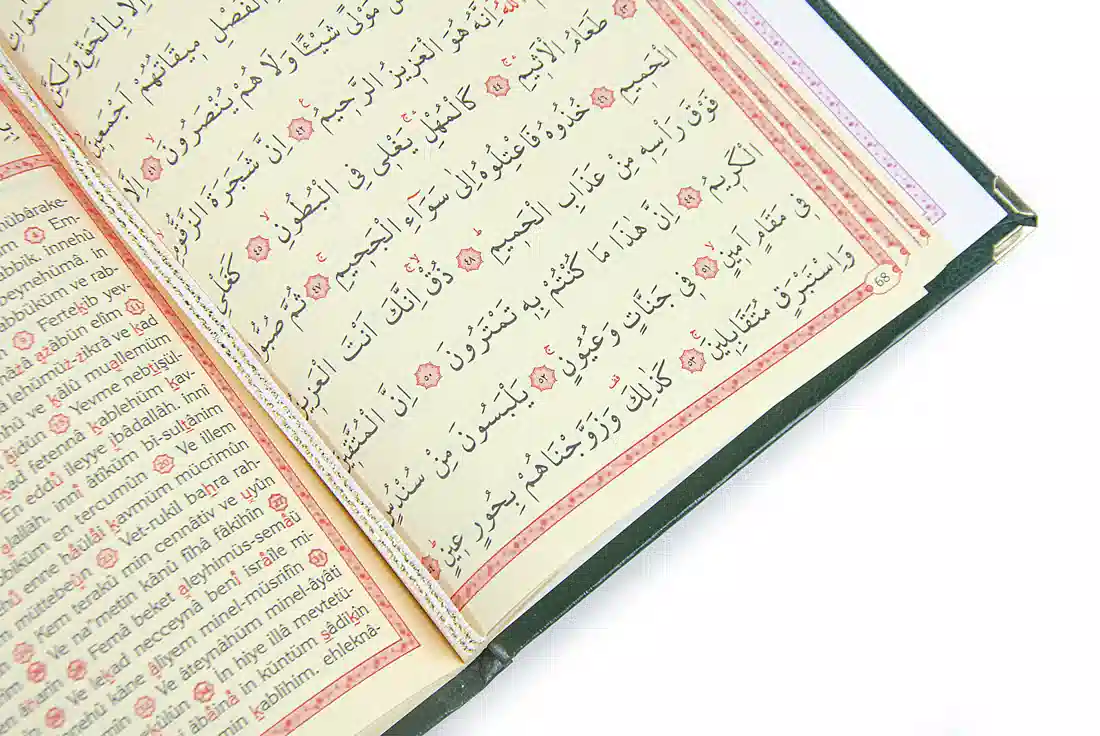 اِلَّا بِالْحَقِّ وَلٰكِنَّ
الْفَصْلِ مِيقَاتُهُمْ اَجْمَعِينَ
مَوْلًى شَيْـًٔا وَلَا هُمْ يُنْصَرُونَ ٤١ اِلَّا
اللّٰهُ اِنَّهُ هُوَ الْعَزِيزُ الرَّحِيمُ ٤٢ اِنَّ شَجَرَةَ الزَّقُّومِ
٤٣ طَعَامُ الْاَثِيمِ ٤٤ كَالْمُهْلِ يَغْلِى فِى الْبُطُونِ ٤٥ كَغَلْىِ
الْحَمِيمِ ٤٦ خُذُوهُ فَاعْتِلُوهُ اِلٰى سَوَٓاءِ الْجَحِيمِ ٤٧ ثُمَّ صُبُّوا
فَوْقَ رَأْسِهِ مِنْ عَذَابِ الْحَمِيمِ ٤٨ ذُقْ اِنَّكَ اَنْتَ الْعَزِيزُ
الْكَرِيمُ ٤٩ اِنَّ هٰذَا مَا كُنْتُمْ بِهِ تَمْتَرُونَ ٥٠ اِنَّ الْمُتَّقِينَ
فِى مَقَامٍ اَمِينٍ ٥١ فِى جَنَّاتٍ وَعُيُونٍ ٥٢ يَلْبَسُونَ مِنْ سُنْدُسٍ
وَاِسْتَبْرَقٍ مُتَقَابِلِينَ ٥٣ كَذٰلِكَ وَزَوَّجْنَاهُمْ بِحُورٍ عِينٍ
68
mübârake-
Em-
abbik. innehû
beynehümâ. in
abbüküm ve rab-
Fertekib yev-
azâbün elîm 11
lehümüz-zikrâ ve kad
ve kâlû muallemüm
Yevme nebtışül-
fetennâ kablehüm kav-
En eddû ileyye ibâdallâh. innî
alallâh. innî âtîküm bi-sultânim
en tercumûn 20 Ve illem
enne hâülâi kavmüm mücrimûn
müttebeûn 23 Vet-rukil bahra rah-
Kem terakû min cennâtiv ve uyûn
Ve na'metin kânû fîhâ fâkihîn
Femâ beket aleyhimüs-semâü
Ve lekad necceynâ benî isrâîle mi-
nehû kâne âliyem minel-müsrifîn 31
Ve âteynâhüm minel-âyâti
İn hiye illâ mevtetü-
âbâinâ in küntüm sâdikîn
min kablihim. ehleknâ-